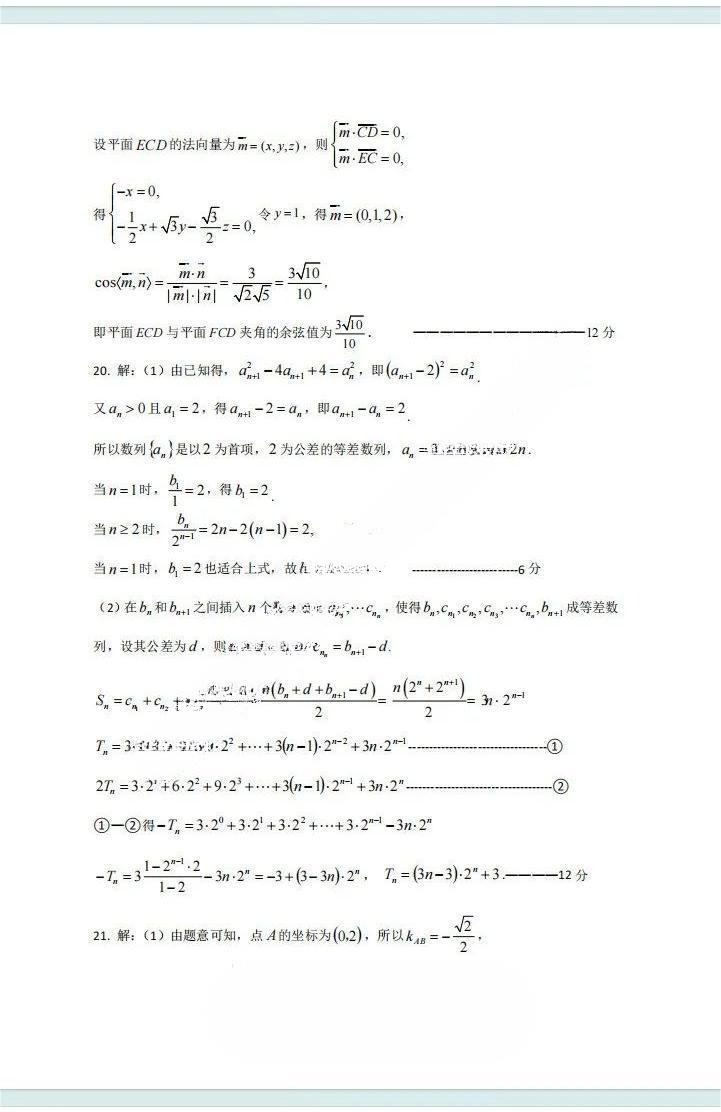 设平面 ECD 的法向量为 m = (x, y, z)，则 { m · CD = 0, m · EC = 0,
得 { −x = 0, −1/2 x + √3 y − √3/2 z = 0, 令 y = 1，得 m = (0,1,2)，
cos⟨m, n⟩ = m·n / |m|·|n| = 3/(√2√5) = 3√10/10，
即平面 ECD 与平面 FCD 夹角的余弦值为 3√10/10． ——————————12 分
20. 解：（1）由已知得，a²ₙ₊₁ − 4aₙ₊₁ + 4 = a²ₙ，即 (aₙ₊₁ − 2)² = a²ₙ.
又 aₙ > 0 且 a₁ = 2，得 aₙ₊₁ − 2 = aₙ，即 aₙ₊₁ − aₙ = 2.
所以数列 {aₙ} 是以 2 为首项，2 为公差的等差数列，aₙ = 2n.
当 n = 1 时，b₁/1 = 2，得 b₁ = 2.
当 n ≥ 2 时，bₙ/2ⁿ⁻¹ = 2n − 2(n − 1) = 2,
当 n = 1 时，b₁ = 2 也适合上式，故 --------------------------6 分
（2）在 bₙ 和 bₙ₊₁ 之间插入 n 个 ，⋯ cₙₙ，使得 bₙ, cₙ₁, cₙ₂, cₙ₃, ⋯ cₙₙ, bₙ₊₁ 成等差数
列，设其公差为 d，则 cₙₙ = bₙ₊₁ − d.
Sₙ = cₙ₁ + cₙ₂ + n(bₙ + d + bₙ₊₁ − d)/2 = n(2ⁿ + 2ⁿ⁺¹)/2 = 3n · 2ⁿ⁻¹
Tₙ = 3· · 2² + ⋯ + 3(n − 1)· 2ⁿ⁻² + 3n · 2ⁿ⁻¹----------------------------------①
2Tₙ = 3 · 2¹ + 6 · 2² + 9 · 2³ + ⋯ + 3(n − 1)· 2ⁿ⁻¹ + 3n · 2ⁿ-----------------------------------②
①—②得 −Tₙ = 3 · 2⁰ + 3 · 2¹ + 3 · 2² + ⋯ + 3 · 2ⁿ⁻¹ − 3n · 2ⁿ
−Tₙ = 3 (1 − 2ⁿ⁻¹ · 2)/(1 − 2) − 3n · 2ⁿ = −3 + (3 − 3n) · 2ⁿ， Tₙ = (3n − 3) · 2ⁿ + 3.————12 分
21. 解：（1）由题意可知，点 A 的坐标为 (0,2)，所以 k_AB = −√2/2，